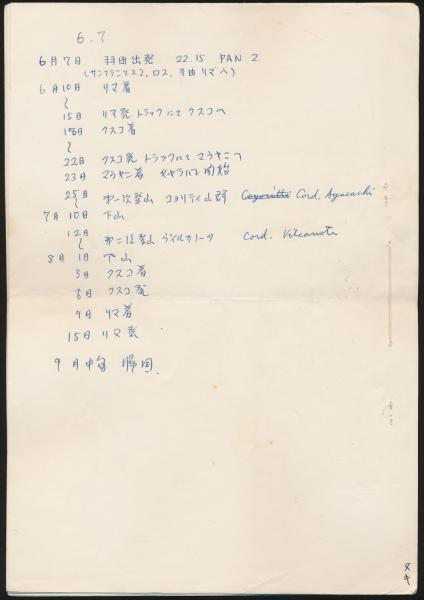 6.7
6月7日 羽田出発 22.15 PAN 2
(サンフランシスコ、ロス、経由リマへ)
6月10日 リマ着
〜
15日 リマ発 トラックにてクスコへ
18日 クスコ着
〜
22日 クスコ発 トラックにてマラヤニへ
23日 マラヤニ着 キャラバン開始
25日 第一次登山 コヨリティ山群 Coyoritti Cord. Ayacachi
〜
7月10日 下山
12日 第二次登山 ヴィルカノータ Cord. Vilcanota
〜
8月1日 下山
3日 クスコ着
6日 クスコ発
9日 リマ着
15日 リマ発
9月中旬 帰国.
ヌキ